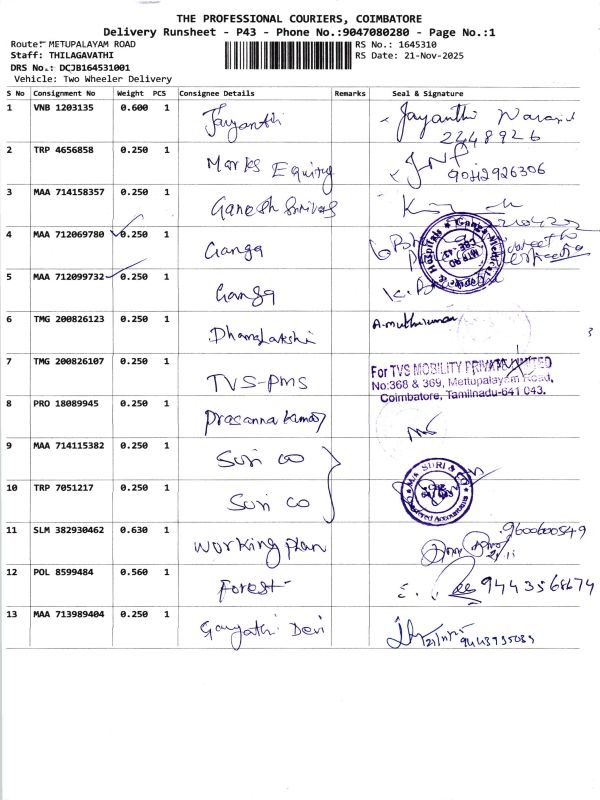 THE PROFESSIONAL COURIERS, COIMBATORE
Delivery Runsheet - P43 - Phone No.:9047080280 - Page No.:1
Route: METUPALAYAM ROAD RS No.: 1645310
Staff: THILAGAVATHI RS Date: 21-Nov-2025
DRS No.: DCJB164531001
Vehicle: Two Wheeler Delivery
S No Consignment No Weight PCS Consignee Details Remarks Seal & Signature
1 VNB 1203135 0.600 1 Jayanthi Jayanthi
2248926
2 TRP 4656858 0.250 1 Marks Equity
9042926306
3 MAA 714158357 0.250 1 Ganesh
4 MAA 712069780 0.250 1 Ganga
5 MAA 712099732 0.250 1 Ganga
6 TMG 200826123 0.250 1 Dhanalakshi A.muthukumar
7 TMG 200826107 0.250 1 TVS-PMS For TVS MOBILITY PRIVATE LIMITED
No:368 & 369, Mettupalayam Road,
Coimbatore, Tamilnadu-641 043.
8 PRO 18089945 0.250 1 Prasanna Kumar
9 MAA 714115382 0.250 1 Suri co M/s SURI & CO
Chartered Accountants
10 TRP 7051217 0.250 1 Suri co
11 SLM 382930462 0.630 1 Working plan 9600600549
12 POL 8599484 0.560 1 Forest 9443568674
13 MAA 713989404 0.250 1 Gayathi Devi